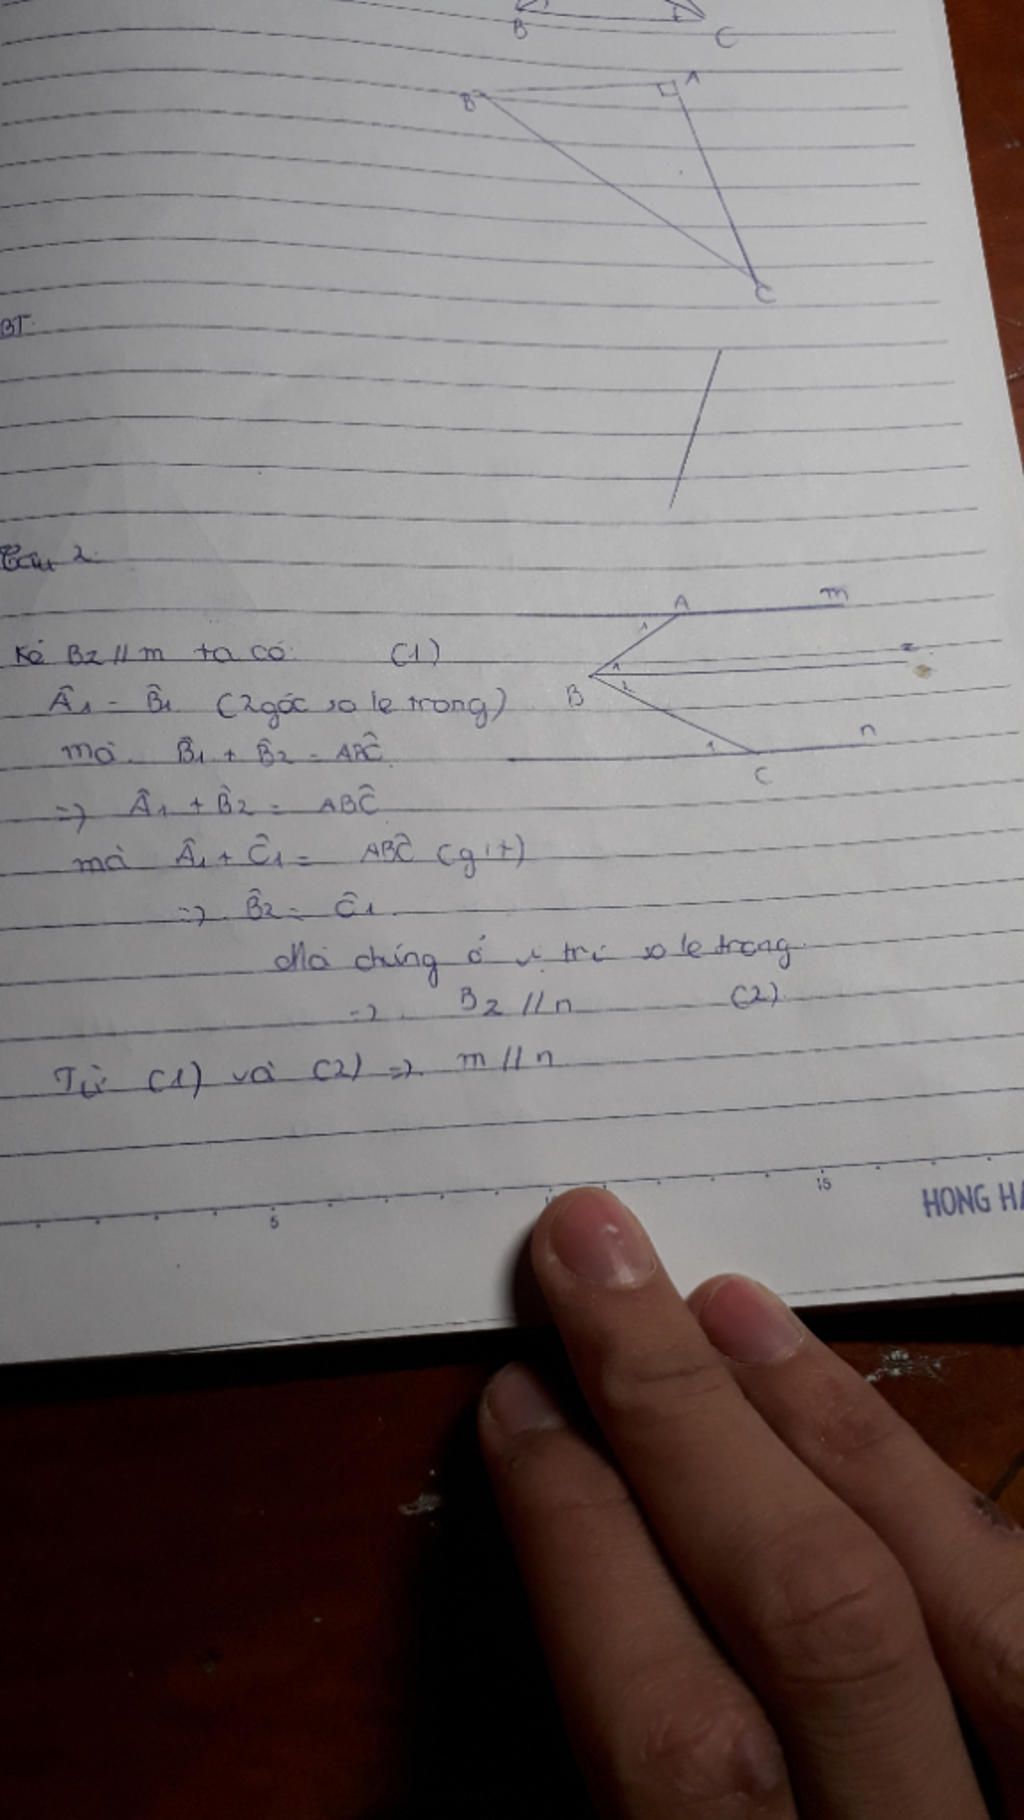 B C
B A
C
BT
Câu 2
A m
Kẻ Bz // m ta có (1)
1 1 z
Â1 = B̂1 (2 góc so le trong)
B 2
mà B̂1 + B̂2 = ABĈ
1 n
C
=> Â1 + B̂2 = ABĈ
mà Â1 + Ĉ1 = ABĈ (gt)
=> B̂2 = Ĉ1
Mà chúng ở vị trí so le trong
=> Bz // n (2)
Từ (1) và (2) => m // n
5 15
HONG HA